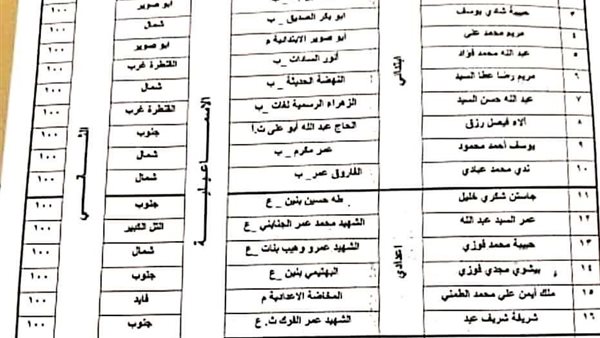 ٣ حبيبة شادي يوسف ابو بكر الصديق _ ب ابو صوير ١٠٠
٤ مريم محمد على ابو صوير الابتدائية م شمال ١٠٠
٥ عبد الله محمد فؤاد أنور السادات _ ب ابو صوير ١٠٠
٦ مريم رضا عطا السيد النهضة الحديثة _ ب القنطرة غرب ١٠٠
٧ عبد الله حسن السيد الزهراء الرسمية لغات _ ب شمال ١٠٠
٨ آلاء فيصل رزق الحاج عبد الله أبو على ت.أ القنطرة غرب ١٠٠
٩ يوسف أحمد محمود عمر مكرم _ ب جنوب ١٠٠
١٠ ندي محمد عبادي الفاروق عمر _ ب شمال ١٠٠
شمال ١٠٠
ابتدائي
الاسماعيلية
الثاني
١١ جاستن شكري خليل طه حسين بنين _ ع جنوب ١٠٠
١٢ عمر السيد عبد الله الشهيد محمد عمر الجنايني _ ع التل الكبير ١٠٠
١٣ حبيبة محمد فوزي الشهيد عمرو وهيب بنات _ ع شمال ١٠٠
١٤ بيشوي مجدي فوزي البهتيمي بنين _ ع جنوب ١٠٠
١٥ ملك أيمن علي محمد الطمني المخاضة الاعدادية م فايد ١٠٠
١٦ شريفة شريف عبد الشهيد عمر الفرك ث. ع جنوب ١٠٠
اعدادي